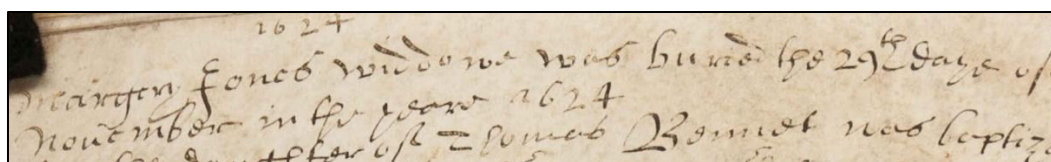 1624
Margery Jones widdowe was buried the 29th daye of
November in the yeare 1624
daughter of Thomas Bennet was baptiz